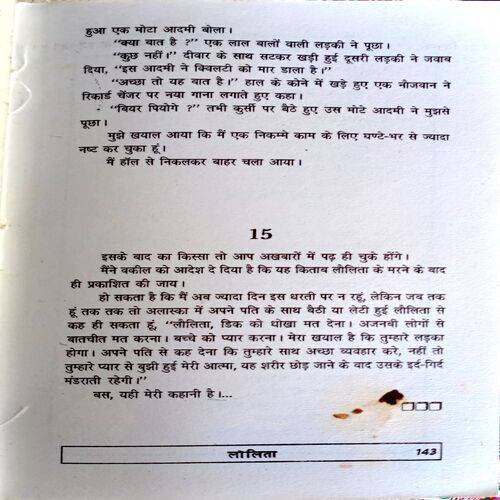 हुआ एक मोटा आदमी बोला।
"क्या बात है ?" एक लाल बालों वाली लड़की ने पूछा।
"कुछ नहीं।" दीवार के साथ सटकर खड़ी हुई दूसरी लड़की ने जवाब
दिया, "इस आदमी ने क्विलटी को मार डाला है।"
"अच्छा तो यह बात है।" हाल के कोने में खड़े हुए एक नौजवान ने
रिकार्ड चेंजर पर नया गाना लगाते हुए कहा।
"बियर पियोगे ?" तभी कुर्सी पर बैठे हुए उस मोटे आदमी ने मुझसे
पूछा।
मुझे खयाल आया कि मैं एक निकम्मे काम के लिए घण्टे-भर से ज्यादा
नष्ट कर चुका हूं।
मैं हॉल से निकलकर बाहर चला आया।
15
इसके बाद का किस्सा तो आप अखबारों में पढ़ ही चुके होंगे।
मैंने वकील को आदेश दे दिया है कि यह किताब लौलिता के मरने के बाद
ही प्रकाशित की जाय।
हो सकता है कि मैं अब ज्यादा दिन इस धरती पर न रहूं, लेकिन जब तक
हूं तक तक तो अलास्का में अपने पति के साथ बैठी या लेटी हुई लौलिता से
कह ही सकता हूं, "लौलिता, डिक को धोखा मत देना। अजनबी लोगों से
बातचीत मत करना। बच्चे को प्यार करना। मेरा खयाल है कि तुम्हारे लड़का
होगा। अपने पति से कह देना कि तुम्हारे साथ अच्छा व्यवहार करे, नहीं तो
तुम्हारे प्यार से बुझी हुई मेरी आत्मा, यह शरीर छोड़ जाने के बाद उसके इर्द-गिर्द
मंडराती रहेगी।"
बस, यही मेरी कहानी है।...
लौलिता 143